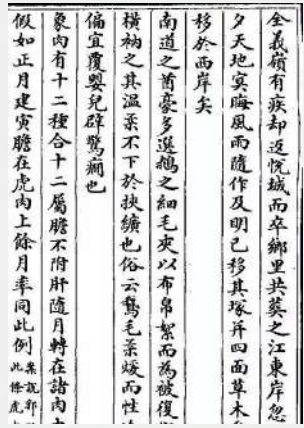 全義嶺有疾却返悅城而卒鄉里共葬之江東岸忽
夕天地冥晦風雨隨作及明已移其塚并四面草木
移於西岸矣
南道之酋豪多選鵝之細毛夾以布帛絮而為被復
橫衲之其溫柔不下於挾纊也俗云鵝毛柔煖而性
偏宜覆嬰兒辟驚癇也
象肉有十二種合十二屬膽不附肝隨月轉在諸肉
假如正月建寅膽在虎肉上餘月率同此例 案說郛
此條虎